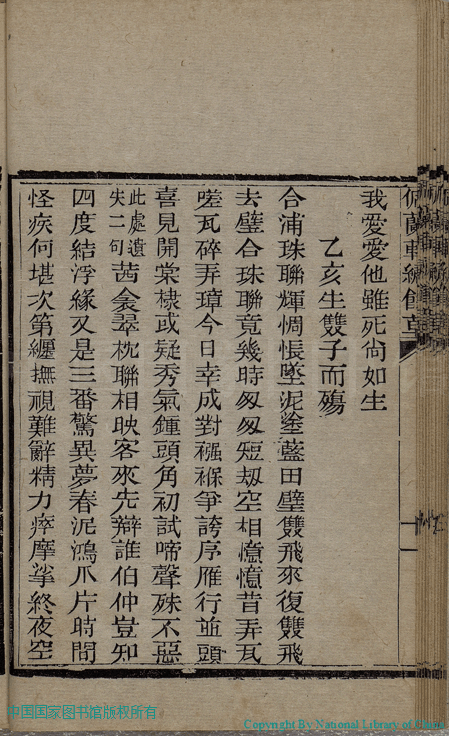 我愛愛他雖死尙如生
乙亥生雙子而殤
合浦珠聯輝惆悵墜泥塗藍田璧雙飛來復雙飛
去璧合珠聯竟幾時匆匆短刼空相憶憶昔弄瓦
嗟瓦碎弄璋今日幸成對襁褓爭誇序雁行並頭
喜見開棠棣或疑秀氣鍾頭角初試啼聲殊不惡
此處遺失二句茜衾翠枕聯相映客來先辯誰伯仲豈知
四度結浮緣又是三番驚異夢春泥鴻爪片時間
怪疾何堪次第纏撫視難辭精力瘁摩挲終夜空
中国国家图书馆版权所有
Copyright By National Library of China